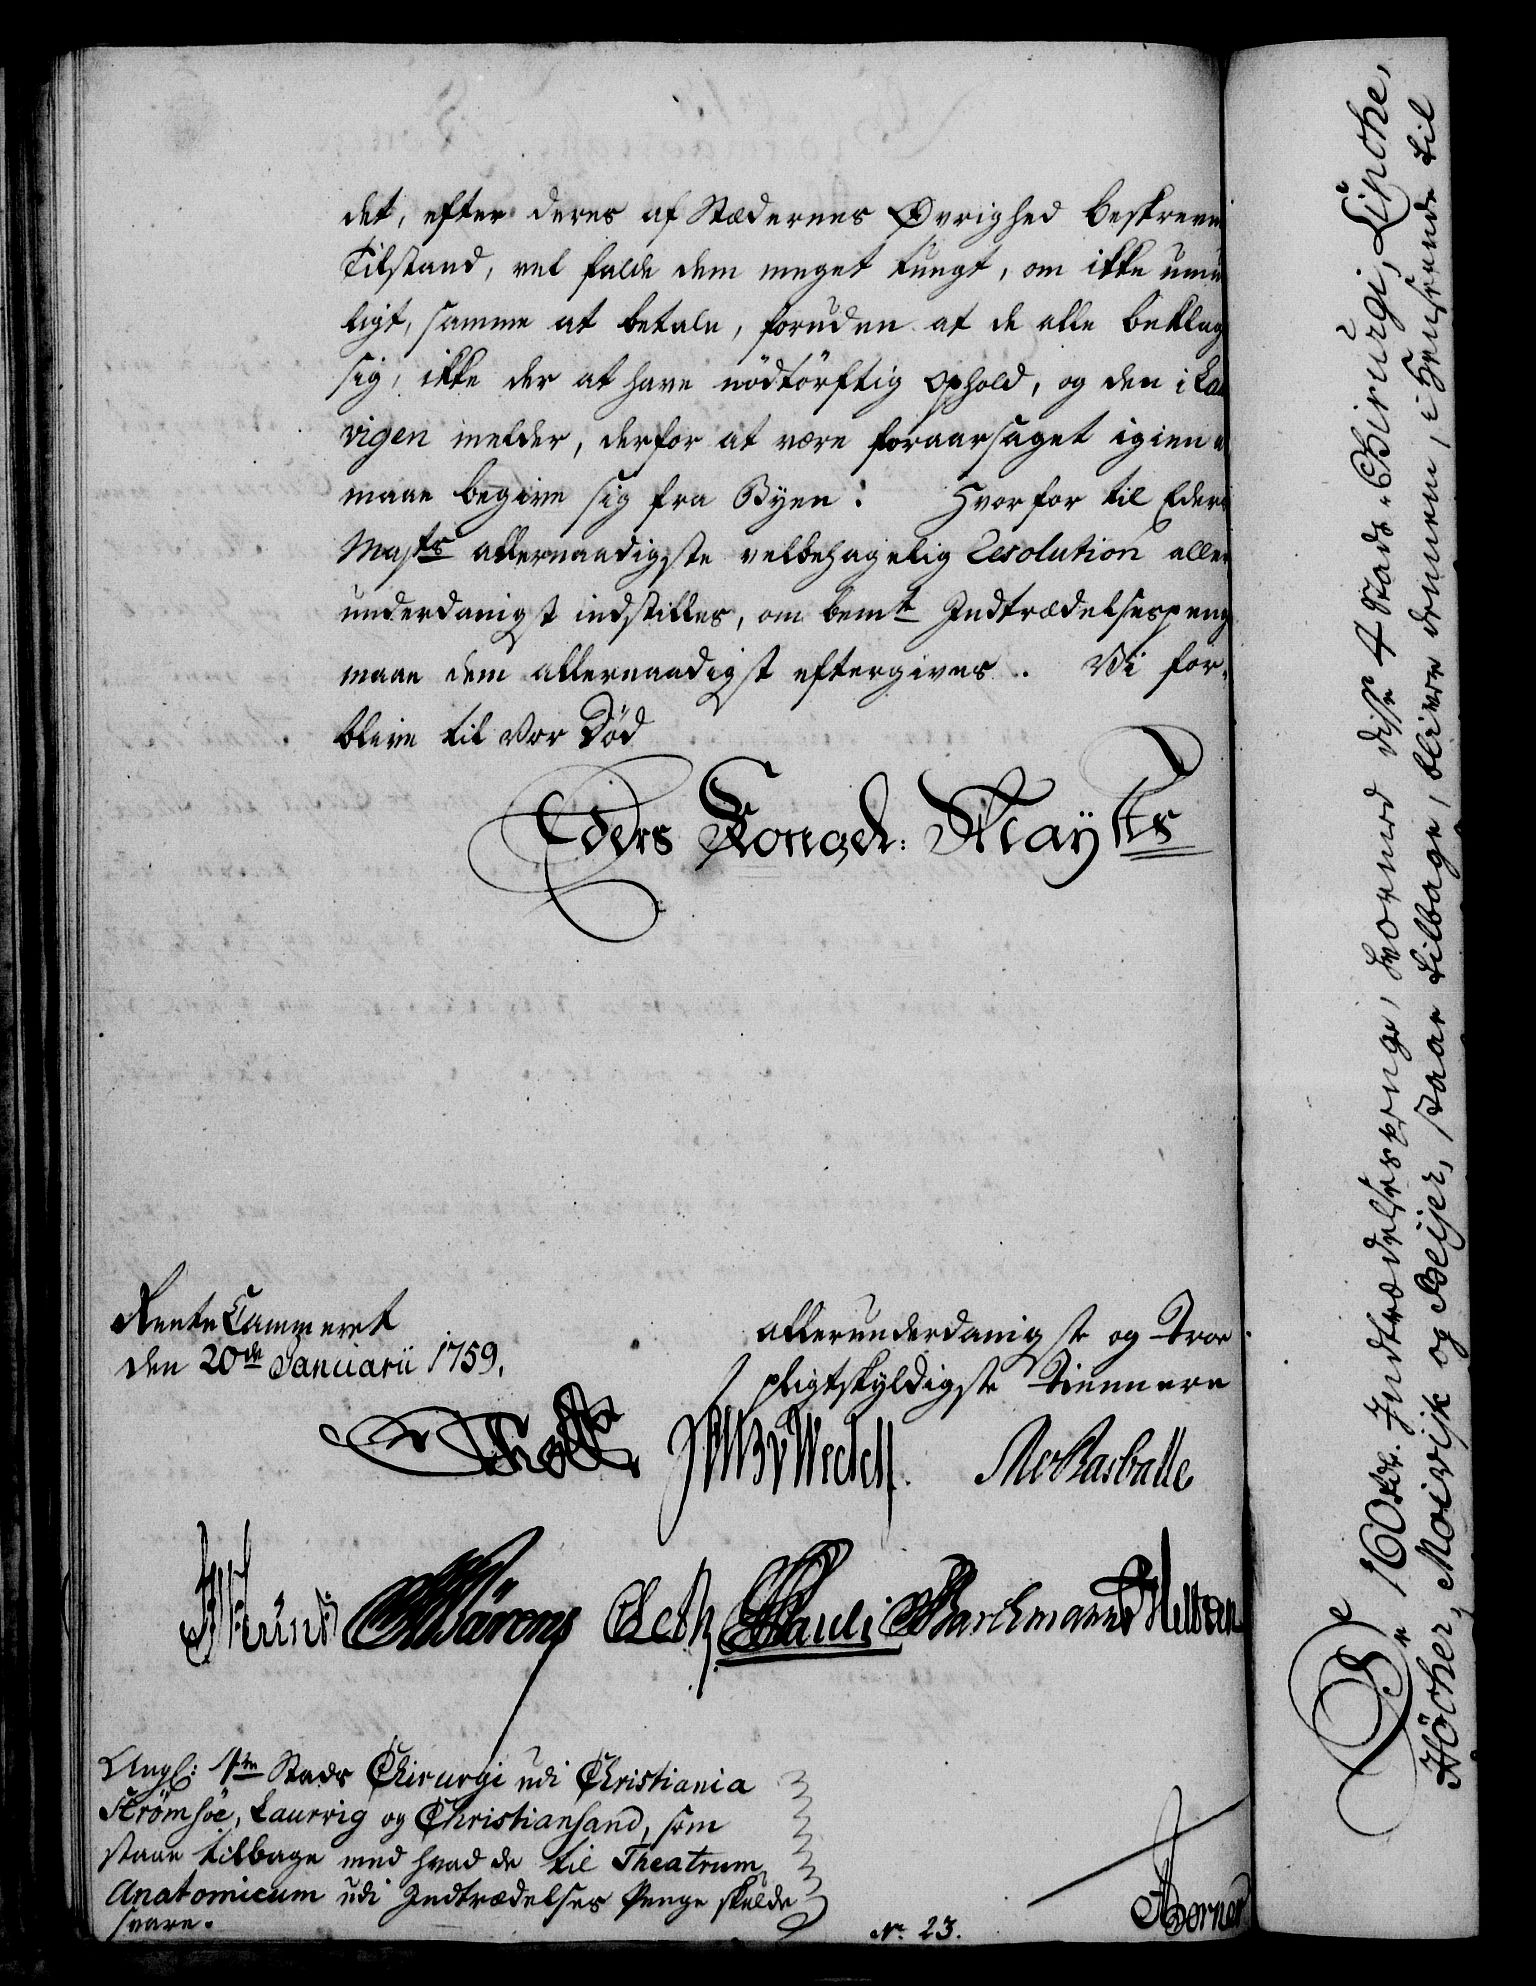 det, efter deres af Stædernes Øvrighed beskrevne
Tilstand, vel falde dem meget tungt, om ikke umu
ligt, samme at betale, foruden at de alle beklage
sig, ikke der at have nödtörftig Ophold, og den i Lau
vigen melder, derfor at være foraarsaget igien at
maae begive sig fra Byen: Hvorfor til Eders
Mayts allernaadigste velbehagelig Resolution aller
underdanigst indstilles, om bemte Indtrædelsespenge
maae dem allernaadigst eftergives. Vi for,
blive til vor Död
Eders Kongel: Mayts
Rente Cammeret
den 20de Januarii 1759.
allerunderdanigste og Troe
pligtskyldigste Tienere
Thott
Wedell
Rasballe
Bärens
Oeth Pauli Barchmann
Ang: 4re Stads Chirurgi udi Christiania
Strömsöe, Laurvig og Christiansand, som
staae tilbage med hvad de til Theatrum
Anatomicum udi Indtrædelses Penge skulde
svare.
No. 23.
De 160 Rdr. Indtrædelsespenge, hvormed disse 4 Stads-Chirurgi, Lipche,
Höcher, Moirisk og Beijer, staae tilbage, blive dennem, i Henseende til